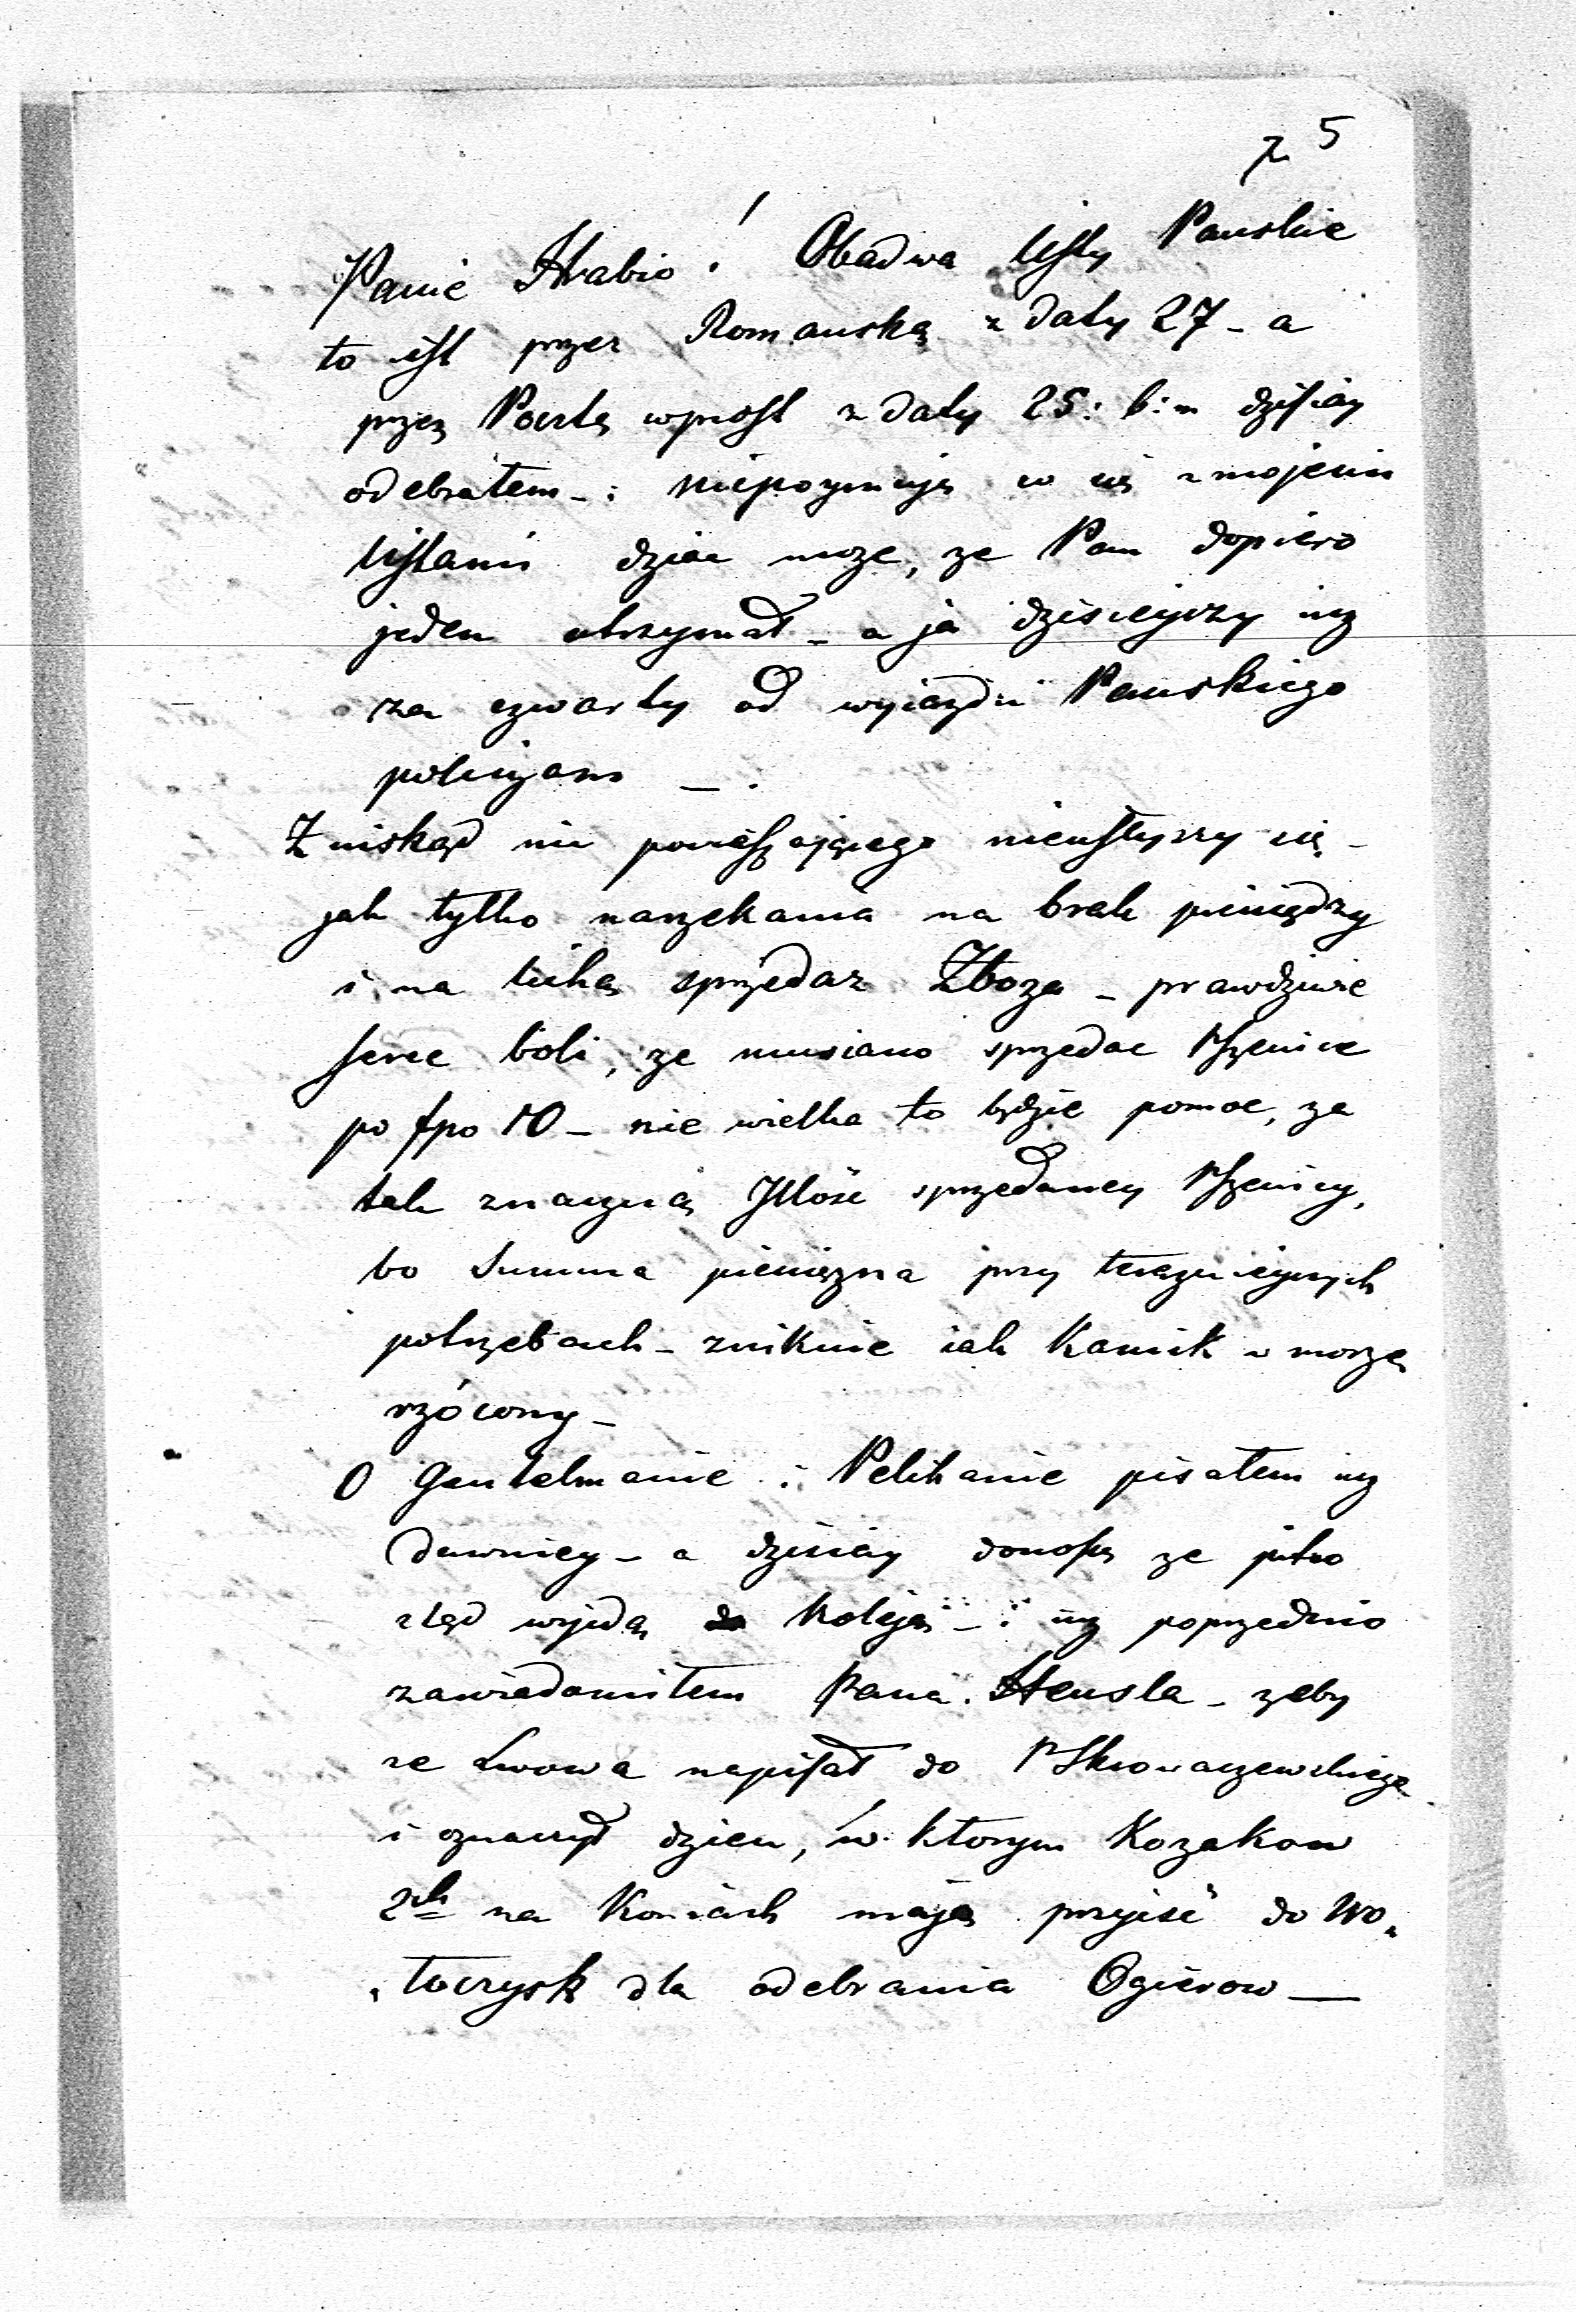 5
Panie Hrabio! Obadwa listy Panskie
to iest przez Romanską z daty 27 - a
przez Pocztę wprost z daty 25: b: m dzisiay
odebrałem - : niepoymuję co się z mojemi
listami dziac moze, ze Pan dopiero
jeden otrzymał - a ja dzisieyszy iuz
za czwarty od wyiazdu Panskiego
policzam - .
Z niskąd nic pocieszającego niesłyszy się -
jak tylko narzekania na brak pieniędzy
i na lichą sprzedaz Zboza - prawdziwie
serce boli, ze musiano sprzedac Pszenice
po fpo 10 - nie wielka to będzie pomoc, za
tak znaczną Jllość sprzedaney Pszenicy,
bo Summa pienięzna przy teraznieyszych
potrzebach - zniknie iak Kamik w morze
rzócony -
O Gentelmanie i Pelikanie pisałem iuz
dawniey - a dzisiay donoszę ze jutro
ztąd wyjdą Koleją - : iuz poprzednio
zawiadomiłem Pana Hensla - zeby
ze Lwowa napisał do P Skowaczewskiego
i oznaczył dzien, w ktorym Kozakow
2ch na Koniach mają przyiść do Wo„
„łoczysk dla odebrania Ogierow —